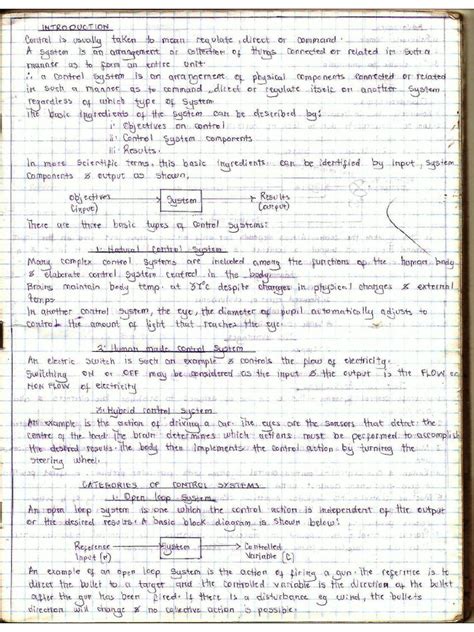 INTRODUCTION
Control is usually taken to mean regulate, direct or command.
A system is an arrangement or collection of things connected or related in such a
manner as to form an entire unit
∴ a control system is an arrangement of physical components connected or related
in such a manner as to command, direct or regulate itself or another system
regardless of which type of system
The basic ingredients of the system can be described by:
i. Objectives on control
ii. Control system components
iii. Results.
In more scientific terms, this basic ingredients can be identified by input, system
components & output as shown,
Objectives (input) → System → Results (output)
There are three basic types of control systems:
1. Natural control system
Many complex control systems are included among the functions of the human body
& elaborate control system centred in the body.
Brains maintain body temp. at 37°C despite changes in physical changes & external
temps
In another control system, the eye, the diameter of pupil automatically adjusts to
control the amount of light that reaches the eye.
2. Human made control system
An electric switch is such an example & controls the flow of electricity.
Switching ON or OFF may be considered as the input & the output is the FLOW or
NON FLOW of electricity
3. Hybrid control system
An example is the action of driving a car. The eyes are the sensors that detect the
centre of the road. The brain determines which actions must be performed to accomplish
the desired results. The body then implements the control action by turning the
steering wheel.
CATEGORIES OF CONTROL SYSTEMS
1. Open loop system
An open loop system is one which the control action is independent of the output
or the desired results. A basic block diagram is shown below:
Reference Input (r) → System → Controlled Variable (C)
An example of an open loop system is the action of firing a gun. The reference is to
direct the bullet to a target and the controlled variable is the direction of the bullet
after the gun has been fired. If there is a disturbance eg wind, the bullets
direction will change & no collective action is possible.